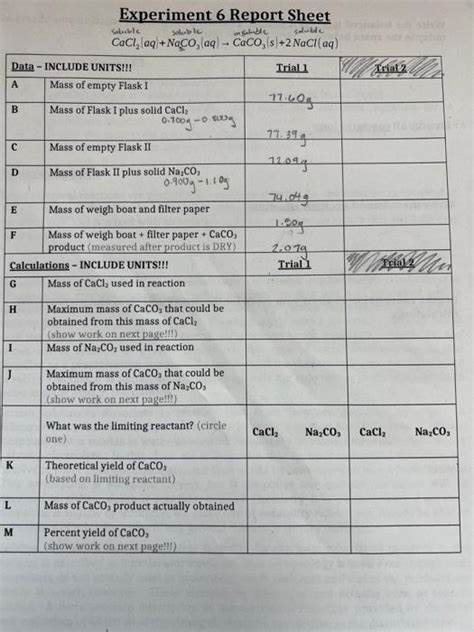 Experiment 6 Report Sheet
soluble soluble insoluble soluble
CaCl₂(aq)+Na₂CO₃(aq) → CaCO₃(s)+2 NaCl(aq)
Data – INCLUDE UNITS!!! Trial 1 Trial 2
A Mass of empty Flask I 77.60g
B Mass of Flask I plus solid CaCl₂
0.700g-0.800g 77.39g
C Mass of empty Flask II 72.09g
D Mass of Flask II plus solid Na₂CO₃
0.900g-1.10g 74.04g
E Mass of weigh boat and filter paper 1.50g
F Mass of weigh boat + filter paper + CaCO₃
product (measured after product is DRY) 2.07g
Calculations – INCLUDE UNITS!!! Trial 1 Trial 2
G Mass of CaCl₂ used in reaction
H Maximum mass of CaCO₃ that could be
obtained from this mass of CaCl₂
(show work on next page!!!)
I Mass of Na₂CO₃ used in reaction
J Maximum mass of CaCO₃ that could be
obtained from this mass of Na₂CO₃
(show work on next page!!!)
What was the limiting reactant? (circle
one) CaCl₂ Na₂CO₃ CaCl₂ Na₂CO₃
K Theoretical yield of CaCO₃
(based on limiting reactant)
L Mass of CaCO₃ product actually obtained
M Percent yield of CaCO₃
(show work on next page!!!)